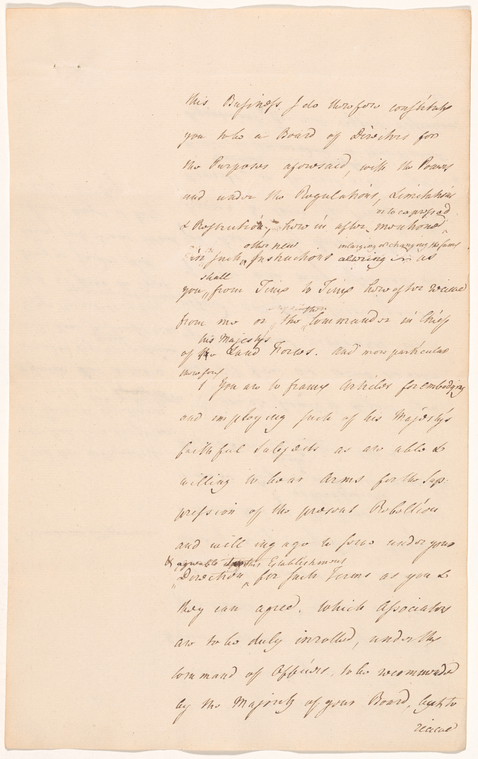 this Business I do therefore constitute
you to be a Board of Directors for
the Purposes aforesaid, with the Powers
and under the Regulations, Limitations
or expressed
& Restrictions herein after mentioned
other new enlarging or changing the same
in such Instructions altering as
shall
you from Time to Time hereafter receive
from me or the Commander in Chief
his Majesty's
of the Land Forces. And more particular
therefore
1 You are to frame Articles for embodying
and employing such of his Majesty's
faithful Subjects as are able &
willing to bear Arms for the Sup
pression of the present Rebellion
and will engage to serve under your
& agreeable to this Establishment
Direction, for such Terms as you &
they can agree. Which Associators
are to be duly inrolled, under the
Command of Officers to be recommended
by the Majority of your Board, & to
receive